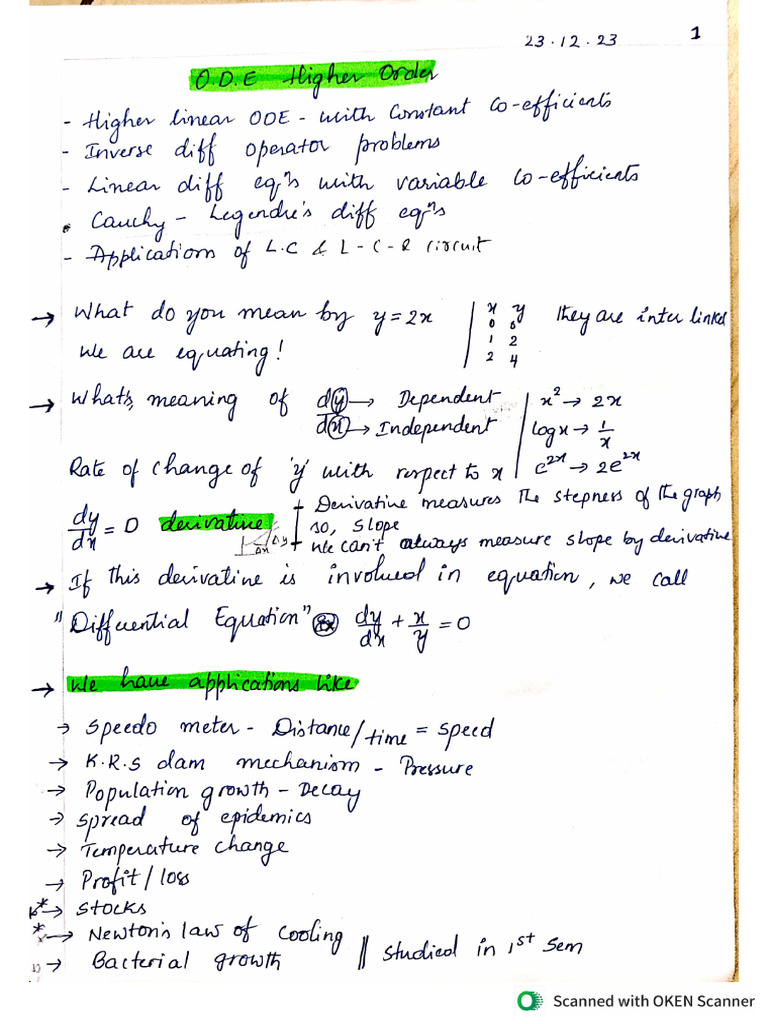 23.12.23
1
O.D.E Higher Order
- Higher linear ODE - with Constant Co-efficients
- Inverse diff operator problems
- Linear diff eqⁿs with variable co-efficients
• Cauchy - Legendre's diff eqⁿs
- Applications of L.C & L-C-R circuit
→ What do you mean by y = 2x | x y They are inter linked
0 0
We are equating! 1 2
2 4
→ What's meaning of dy → Dependent | x² → 2x
dx → Independent | log x → 1/x
Rate of change of 'y' with respect to x | e²ˣ → 2e²ˣ
dy/dx = 0 derivative + Derivative measures the stepness of the graph
so, slope
Δy
Δx
+ We can't always measure slope by derivative
→ If this derivative is involved in equation, we call
"Differential Equation" Ex dy/dx + x/y = 0
→ We have applications like
→ Speedo meter - Distance/time = speed
→ K.R.S dam mechanism - Pressure
→ Population growth - Decay
→ Spread of epidemics
→ Temperature change
→ Profit/loss
*→ Stocks
*→ Newton's law of cooling
→ Bacterial growth || Studied in 1st Sem
Scanned with OKEN Scanner